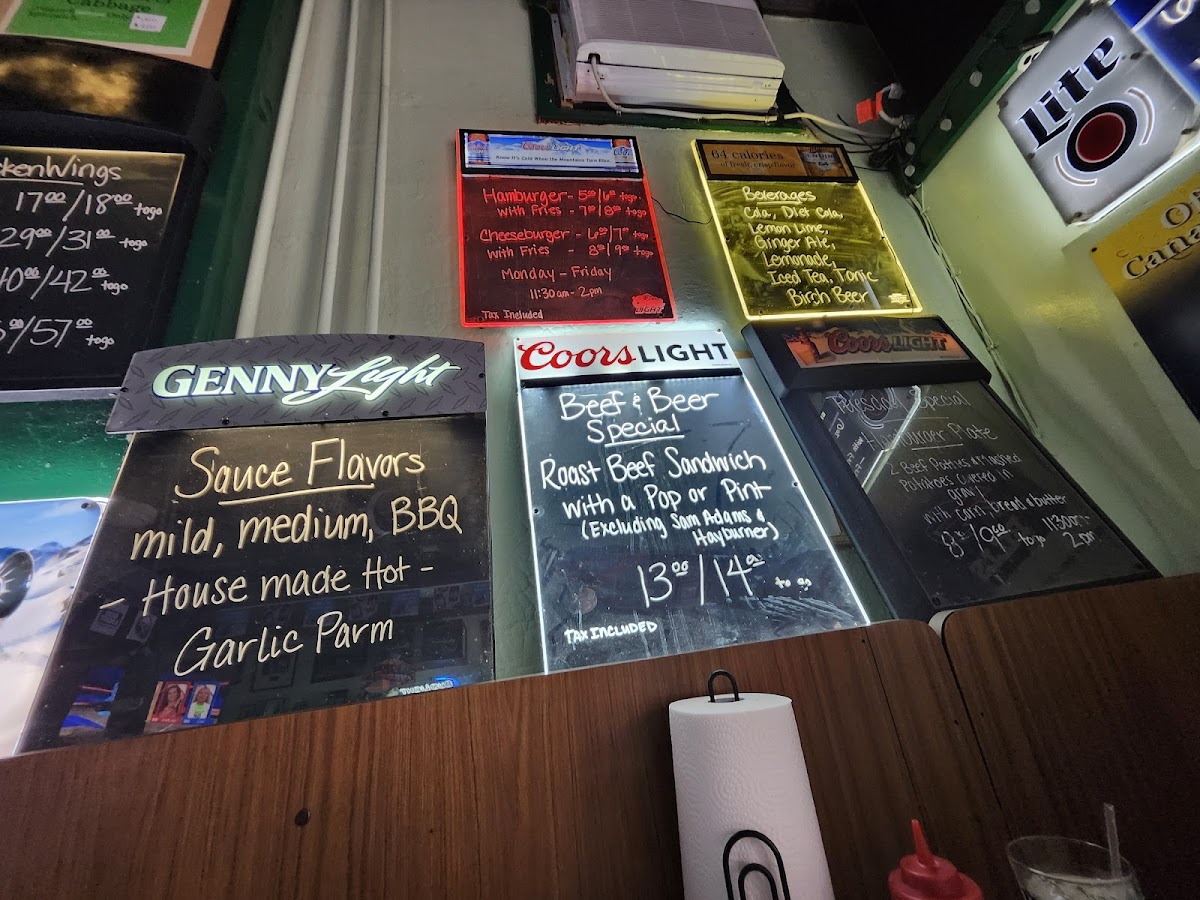 Cabbage
kenWings
17⁰⁰/18⁰⁰ togo
29⁰⁰/31⁰⁰ togo
40⁰⁰/42⁰⁰ togo
/57⁰⁰ togo
Coors Light
Know It's Cold When the Mountains Turn Blue.
Hamburger - 5⁰⁰/6⁰⁰ togo
with Fries - 7⁰⁰/8⁰⁰ togo
Cheeseburger - 6⁰⁰/7⁰⁰ togo
with Fries - 8⁰⁰/9⁰⁰ togo
Monday - Friday
11:30am - 2pm
Tax Included
LIGHT
64 calories
of fresh, crisp flavor
Beverages
Cola, Diet Cola
Lemon Lime,
Ginger Ale,
Lemonade,
Iced Tea, Tonic
Birch Beer
Lite
GENNY Light
Sauce Flavors
mild, medium, BBQ
- House made Hot -
Garlic Parm
Coors LIGHT
Beef & Beer
Special
Roast Beef Sandwich
with a Pop or Pint
(Excluding Sam Adams &
Hayburner)
13⁰⁰/14⁰⁰ to go
TAX INCLUDED
Coors LIGHT
Special
Hamburger Plate
2 Beef Patties & Mashed
Potatoes covered in
gravy
with corn, bread & butter
to go
2pm